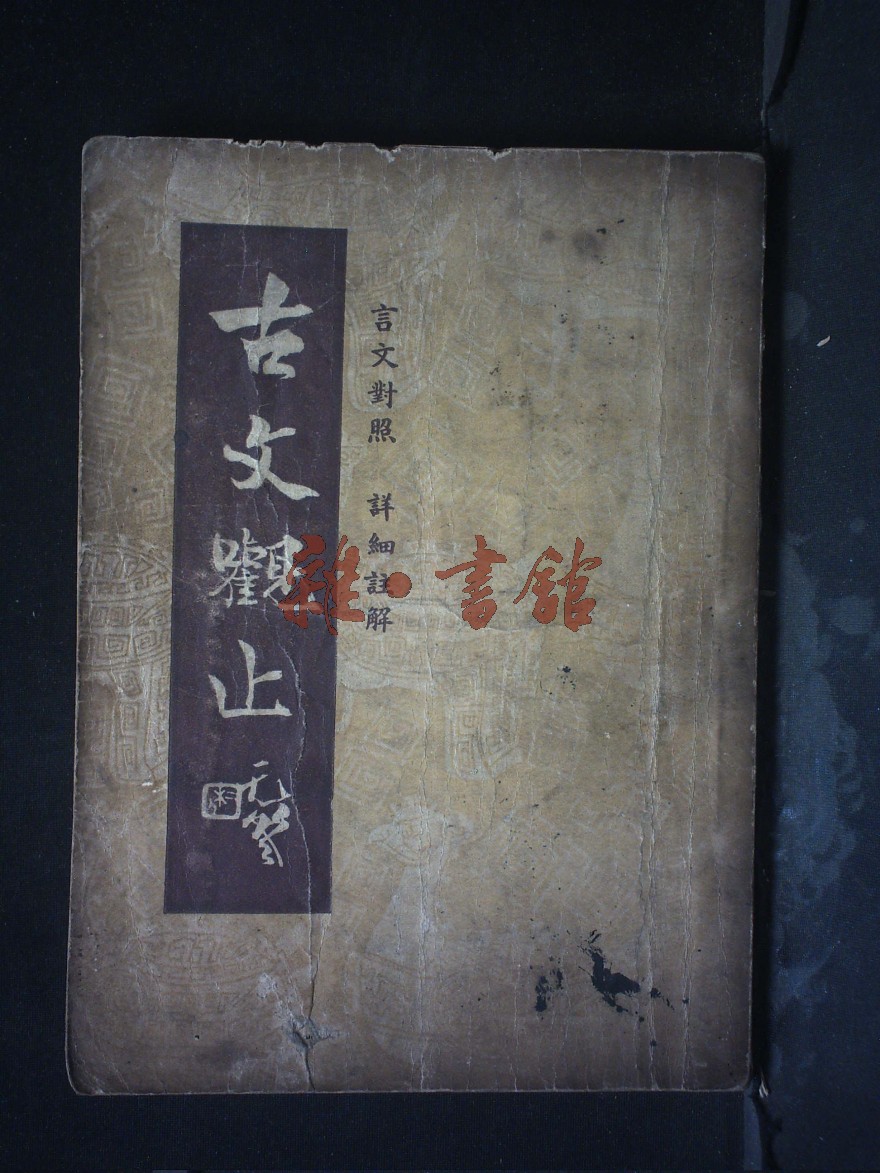 言文對照 詳細註解
古文觀止
雜·書館